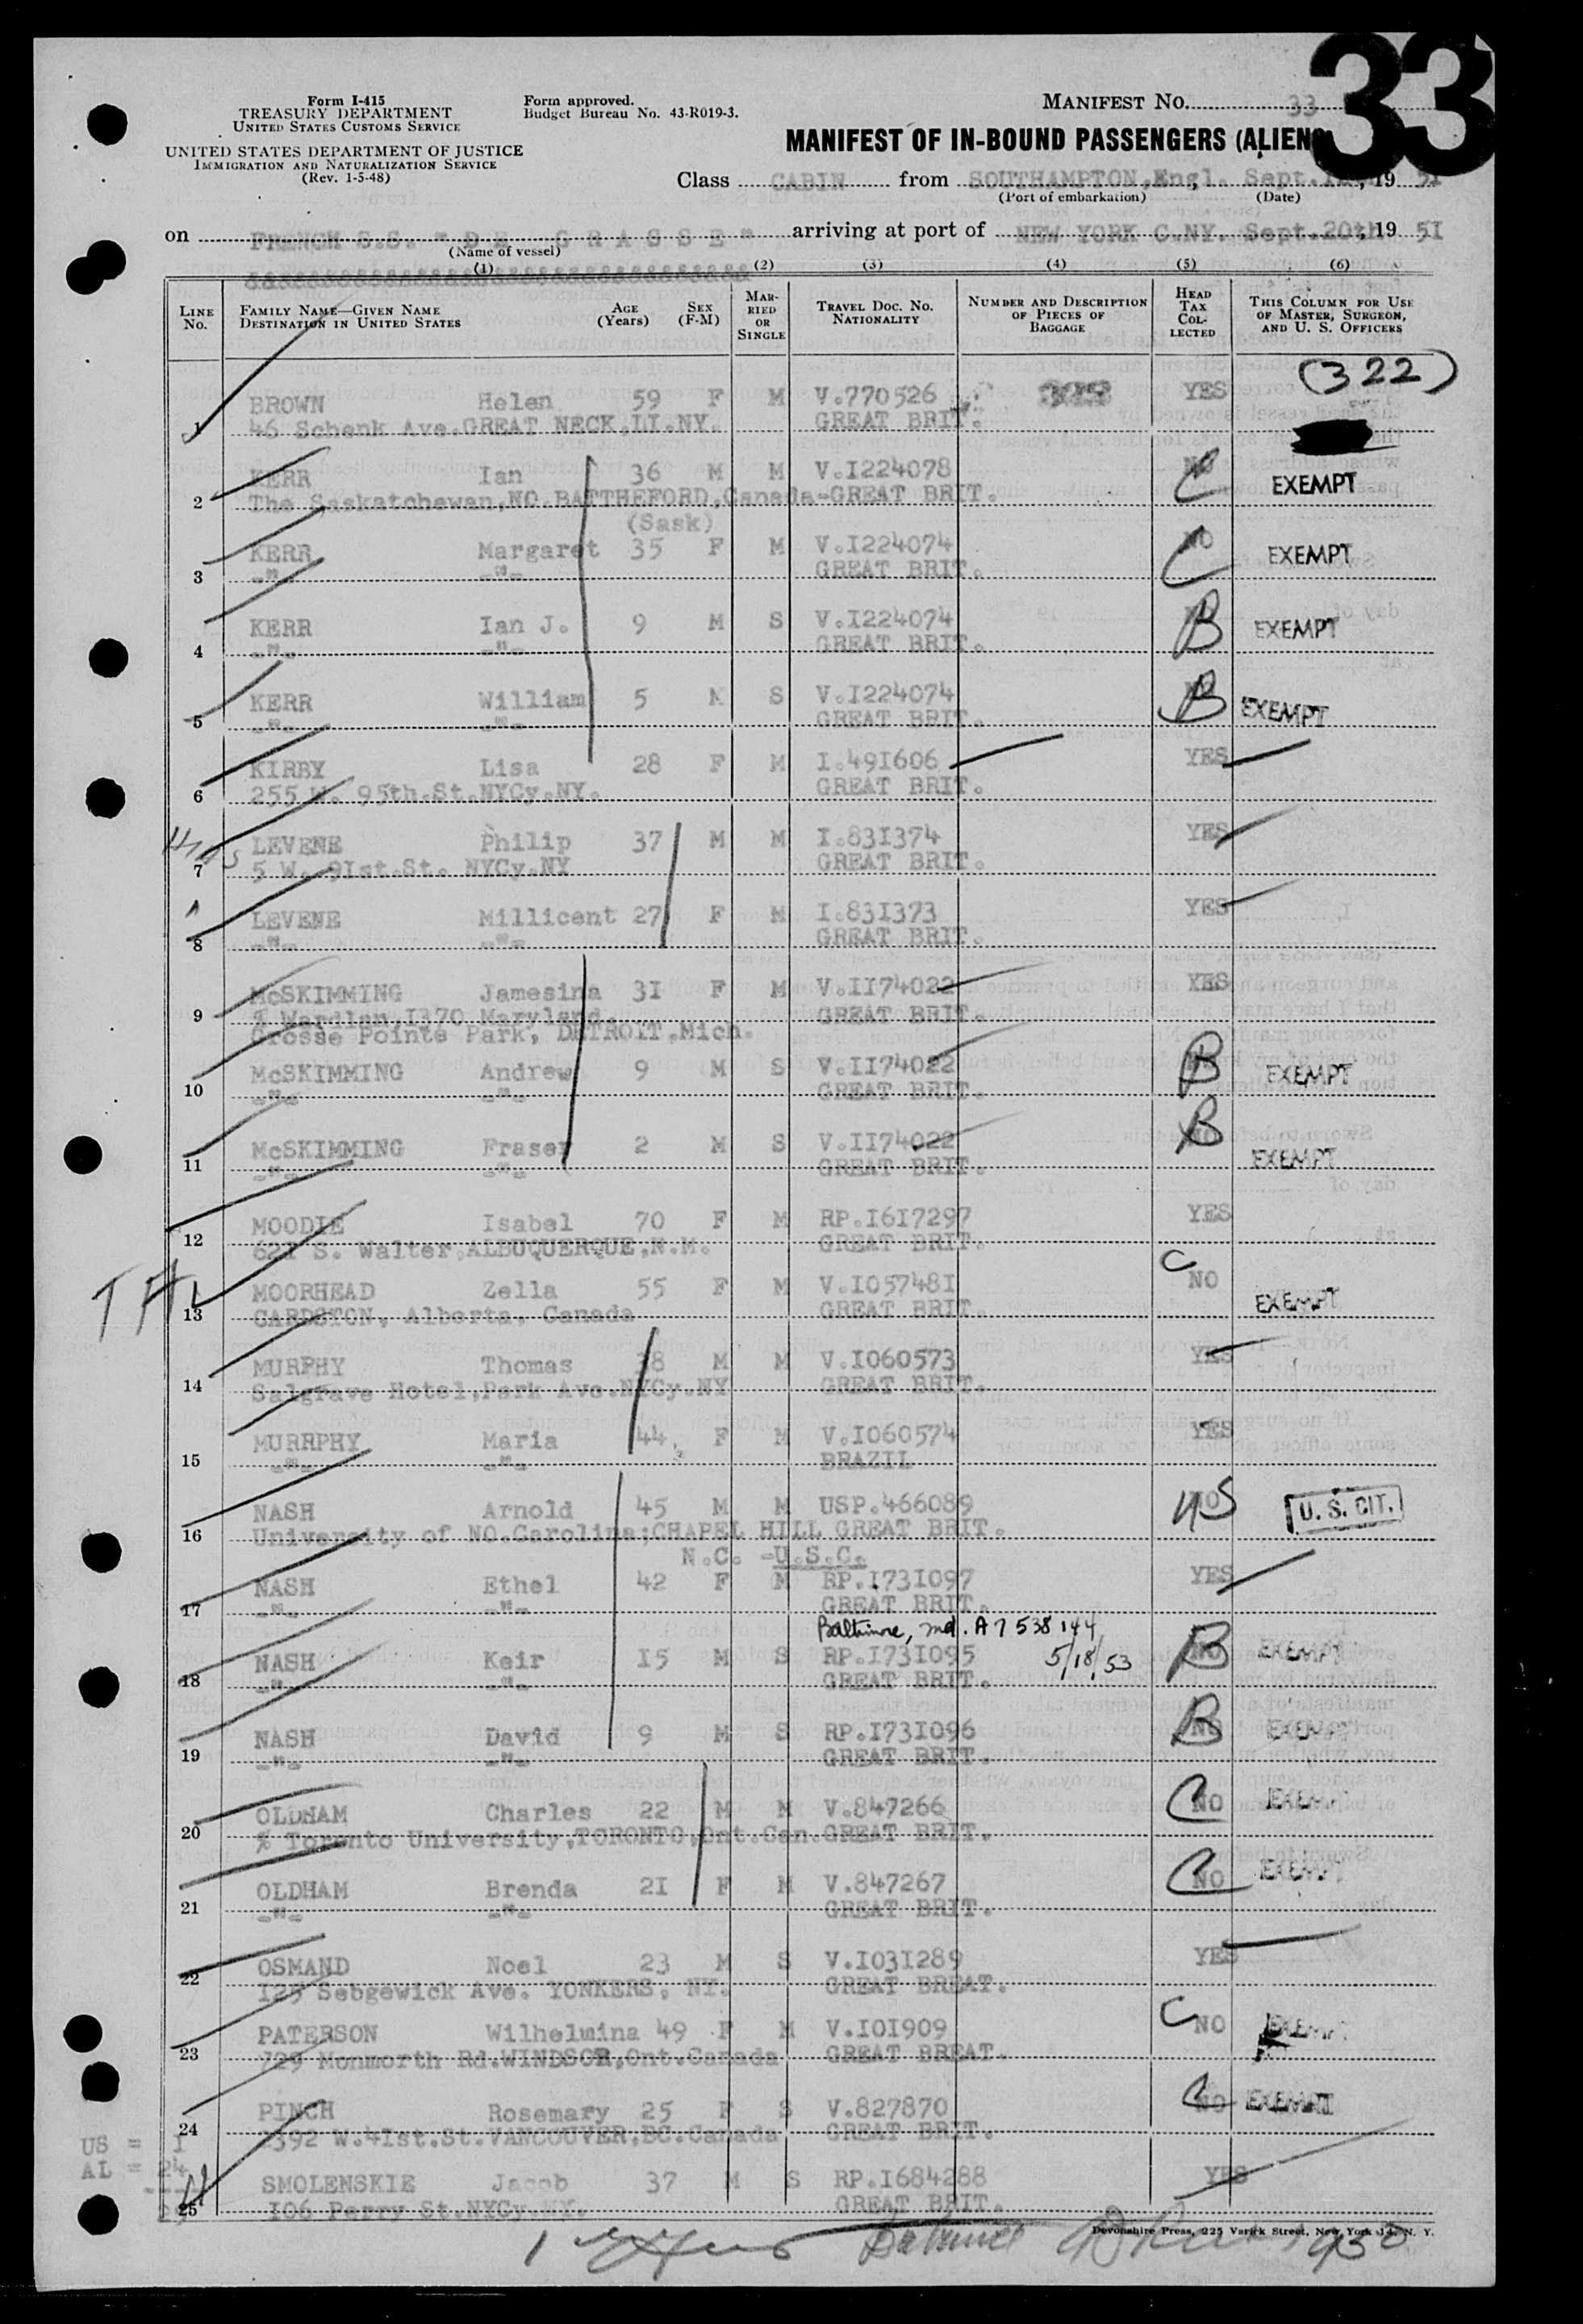 33
Form I-415
TREASURY DEPARTMENT
UNITED STATES CUSTOMS SERVICE
Form approved.
Budget Bureau No. 43-R019-3.
MANIFEST NO. 33
UNITED STATES DEPARTMENT OF JUSTICE
IMMIGRATION AND NATURALIZATION SERVICE
(Rev. 1-5-48)
MANIFEST OF IN-BOUND PASSENGERS (ALIEN
Class CABIN from SOUTHAMPTON,Engl. Sept. , 19 5I
(Port of embarkation) (Date)
on FRENCH S.S. "D E G R A S S E" arriving at port of NEW YORK C.NY. Sept.20th 19 5I
(Name of vessel)
(1) (2) (3) (4) (5) (6)
LINE NO. FAMILY NAME—GIVEN NAME DESTINATION IN UNITED STATES AGE (Years) SEX (F-M) MARRIED OR SINGLE TRAVEL DOC. NO. NATIONALITY NUMBER AND DESCRIPTION OF PIECES OF BAGGAGE HEAD TAX COLLECTED THIS COLUMN FOR USE OF MASTER, SURGEON, AND U. S. OFFICERS
(322)
BROWN Helen 59 F M V.770526 YES
1 46 Schenk Ave.GREAT NECK.LI.NY. GREAT BRIT.
KERR Ian 36 M M V.I224078 NO C EXEMPT
2 The Saskatchewan,NO.BATTHEFORD,Canada-GREAT BRIT.
(Sask)
KERR Margaret 35 F M V.I224074 NO C EXEMPT
3 -"- -"- GREAT BRIT.
KERR Ian J. 9 M S V.I224074 B EXEMPT
4 -"- -"- GREAT BRIT.
KERR William 5 M S V.I224074 B EXEMPT
5 -"- -"- GREAT BRIT.
KIRBY Lisa 28 F M I.49I606 YES
6 255 W. 95th.St.NYCy.NY. GREAT BRIT.
LEVENE Philip 37 M M I.83I374 YES
7 5 W. 9Ist.St. NYCy.NY GREAT BRIT.
LEVENE Millicent 27 F M I.83I373 YES
8 -"- -"- GREAT BRIT.
McSKIMMING Jamesina 3I F M V.II74022 YES
9 % Wardlan,I370 Maryland. GREAT BRIT.
Grosse Pointe Park, DETROIT,Mich.
McSKIMMING Andrew 9 M S V.II74022 B EXEMPT
10 -"- -"- GREAT BRIT.
McSKIMMING Fraser 2 M S V.II74022 B EXEMPT
11 -"- -"- GREAT BRIT.
MOODIE Isabel 70 F M RP.I6I7297 YES
12 621 S. Walter,ALBUQUERQUE,N.M. GREAT BRIT.
MOORHEAD Zella 55 F M V.I05748I C NO EXEMPT
13 CARDSTON, Alberta, Canada GREAT BRIT.
MURPHY Thomas 38 M M V.I060573 YES
14 Salgrave Hotel,Park Ave.NYCy.NY GREAT BRIT.
MURRPHY Maria 44 F M V.I060574 YES
15 -"- -"- BRAZIL
NASH Arnold 45 M M USP.466089 NO US U. S. CIT.
16 University of NO.Carolina;CHAPEL HILL GREAT BRIT.
N.C. -U.S.C.
NASH Ethel 42 F M RP.I73I097 YES
17 -"- -"- GREAT BRIT.
Baltimore, Md. A7 538 144
NASH Keir I5 M S RP.I73I095 5/18/53 NO B EXEMPT
18 -"- -"- GREAT BRIT.
NASH David 9 M S RP.I73I096 NO B EXEMPT
19 -"- -"- GREAT BRIT.
OLDHAM Charles 22 M M V.847266 C NO EXEMPT
20 % Toronto University,TORONTO,Ont.Can.GREAT BRIT.
OLDHAM Brenda 2I F M V.847267 C NO EXEMPT
21 -"- -"- GREAT BRIT.
OSMAND Noel 23 M S V.I03I289 YES
22 I25 Sebgewick Ave. YONKERS, NY. GREAT BREAT.
PATERSON Wilhelmina 49 F M V.I0I909 C NO EXEMPT
23 729 Monmorth Rd.WINDSOR,Ont.Canada GREAT BREAT.
PINCH Rosemary 25 F S V.827870 C NO EXEMPT
24 2392 W.4Ist.St.VANCOUVER,BC.Canada GREAT BRIT.
US = I
AL = 24
SMOLENSKIE Jacob 37 M S RP.I684288 YES
25 I06 Perry St.NYCy.NY. GREAT BRIT.
Devonshire Press, 225 Varick Street, New York 14, N. Y.